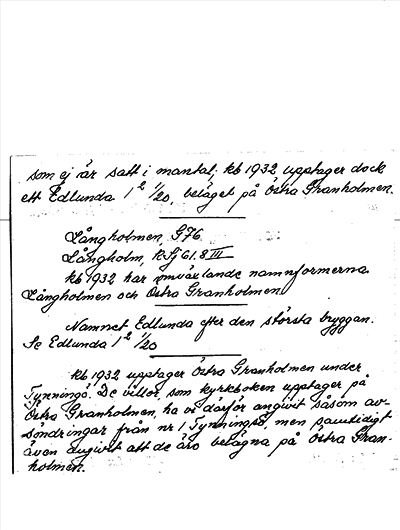 som ej är satt i mantal; kb 1932 upptager dock
ett Edlunda 1² 1/20, beläget på Östra Granholmen.
Långholmen, G76
Långholm, R Sj 61.8 III
kb 1932 har omväxlande namnformerna
Långholmen och Östra Granholmen
Namnet Edlunda efter den största byggn.
Se Edlunda 1² 1/20
kb 1932 upptager Östra Granholmen under
Tynningö. De villor, som kyrkboken upptager på
Östra Granholmen, ha vi därför angivit såsom av-
söndringar från nr 1 Tynningö, men samtidigt
även angivit att de äro belägna på Östra Gran-
holmen.